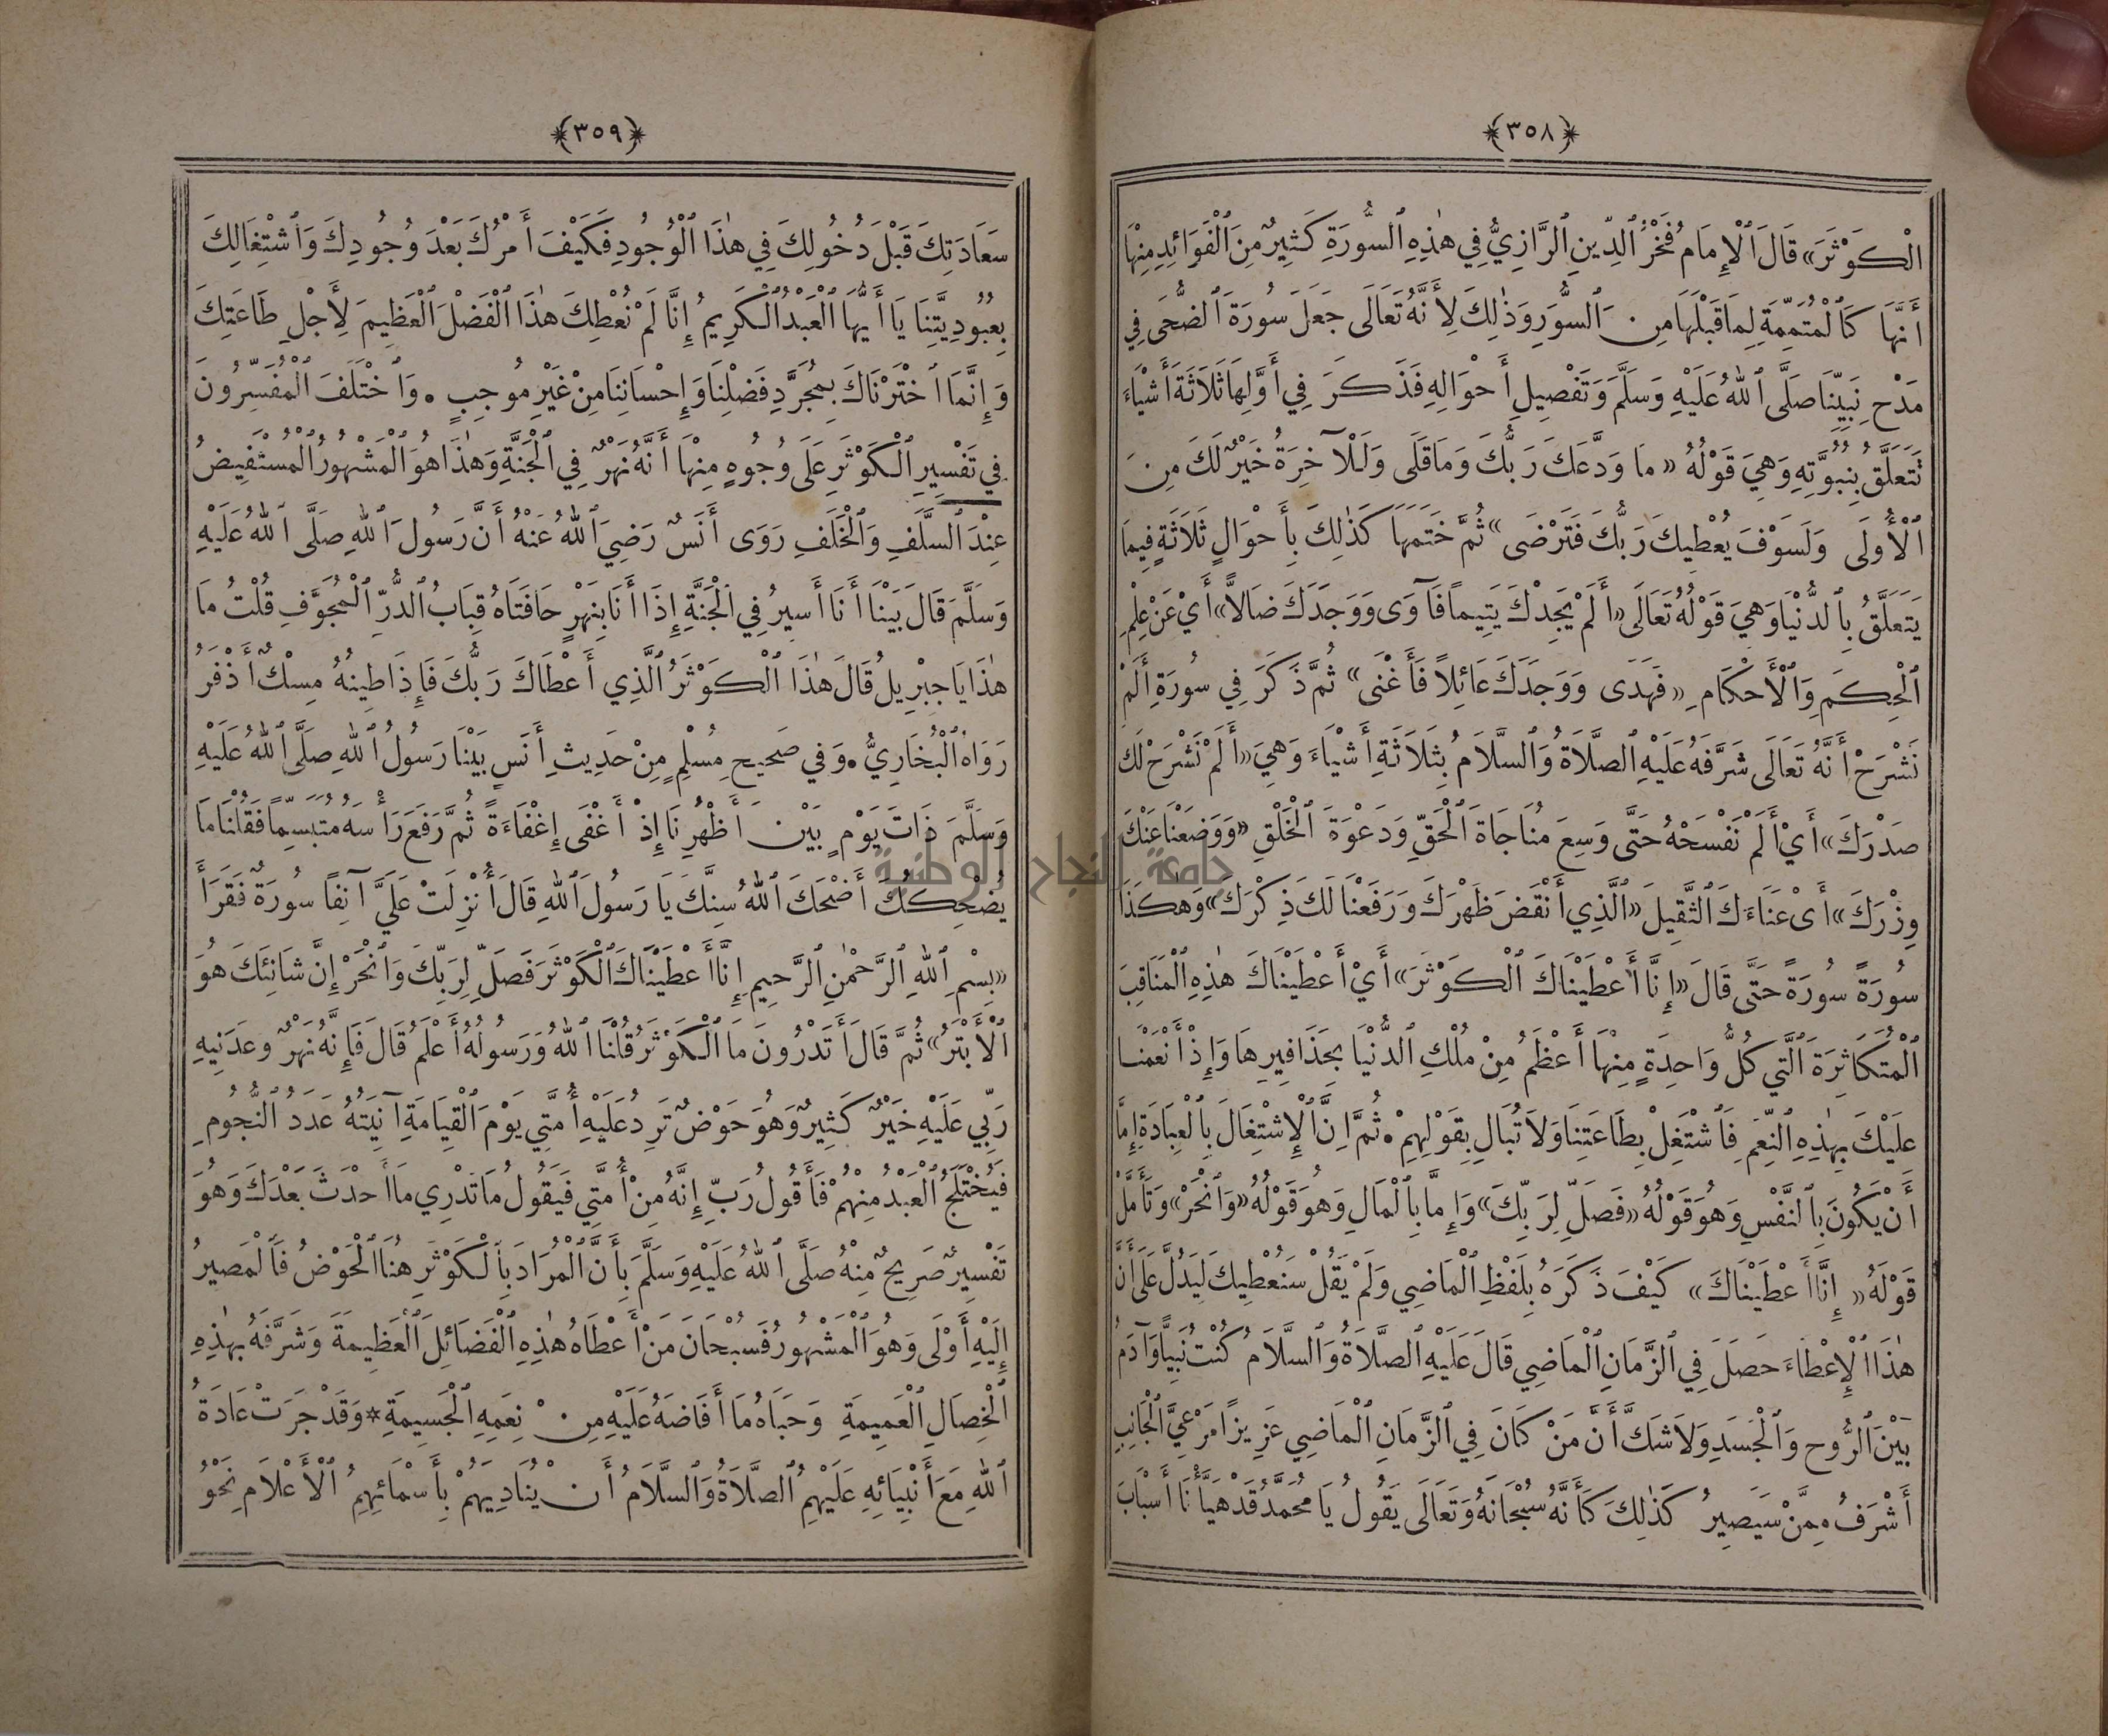 ﴿٣٥٨﴾
الْكَوْثَرَ» قَالَ ٱلْإِمَامُ فَخْرُ ٱلدِّينِ ٱلرَّازِيُّ فِي هٰذِهِ ٱلسُّورَةِ كَثِيرٌ مِنَ ٱلْفَوَائِدِ مِنْهَا
أَنَّهَا كَٱلْمُتَمِّمَةِ لِمَا قَبْلَهَا مِنَ ٱلسُّوَرِ وَذٰلِكَ لِأَنَّهُ تَعَالَى جَعَلَ سُورَةَ ٱلضُّحَى فِي
مَدْحِ نَبِيِّنَا صَلَّى ٱللهُ عَلَيْهِ وَسَلَّمَ وَتَفْصِيلِ أَحْوَالِهِ فَذَكَرَ فِي أَوَّلِهَا ثَلَاثَةَ أَشْيَاءَ
تَتَعَلَّقُ بِنُبُوَّتِهِ وَهِيَ قَوْلُهُ «مَا وَدَّعَكَ رَبُّكَ وَمَا قَلَى وَلَلْآخِرَةُ خَيْرٌ لَكَ مِنَ
ٱلْأُولَى وَلَسَوْفَ يُعْطِيكَ رَبُّكَ فَتَرْضَى» ثُمَّ خَتَمَهَا كَذٰلِكَ بِأَحْوَالٍ ثَلَاثَةٍ فِيمَا
يَتَعَلَّقُ بِٱلدُّنْيَا وَهِيَ قَوْلُهُ تَعَالَى «أَلَمْ يَجِدْكَ يَتِيمًا فَآوَى وَوَجَدَكَ ضَالًّا» أَيْ عَنْ عِلْمِ
ٱلْحِكَمِ وَٱلْأَحْكَامِ «فَهَدَى وَوَجَدَكَ عَائِلًا فَأَغْنَى» ثُمَّ ذَكَرَ فِي سُورَةِ أَلَمْ
نَشْرَحْ أَنَّهُ تَعَالَى شَرَّفَهُ عَلَيْهِ ٱلصَّلَاةُ وَٱلسَّلَامُ بِثَلَاثَةِ أَشْيَاءَ وَهِيَ «أَلَمْ نَشْرَحْ لَكَ
صَدْرَكَ» أَيْ أَلَمْ نَفْسَحْهُ حَتَّى وَسِعَ مُنَاجَاةَ ٱلْحَقِّ وَدَعْوَةَ ٱلْخَلْقِ «وَوَضَعْنَا عَنْكَ
وِزْرَكَ» أَىْ عَنَاءَكَ ٱلثَّقِيلَ «ٱلَّذِي أَنْقَضَ ظَهْرَكَ وَرَفَعْنَا لَكَ ذِكْرَكَ» وَهٰكَذَا
سُورَةً سُورَةً حَتَّى قَالَ «إِنَّا أَعْطَيْنَاكَ ٱلْكَوْثَرَ» أَيْ أَعْطَيْنَاكَ هٰذِهِ ٱلْمَنَاقِبَ
ٱلْمُتَكَاثِرَةَ ٱلَّتِي كُلُّ وَاحِدَةٍ مِنْهَا أَعْظَمُ مِنْ مُلْكِ ٱلدُّنْيَا بِحَذَافِيرِهَا وَإِذْ أَنْعَمْنَا
عَلَيْكَ بِهٰذِهِ ٱلنِّعَمِ فَٱشْتَغِلْ بِطَاعَتِنَا وَلَا تُبَالِ بِقَوْلِهِمْ • ثُمَّ إِنَّ ٱلْإِشْتِغَالَ بِٱلْعِبَادَةِ إِمَّا
أَنْ يَكُونَ بِٱلنَّفْسِ وَهُوَ قَوْلُهُ «فَصَلِّ لِرَبِّكَ» وَإِمَّا بِٱلْمَالِ وَهُوَ قَوْلُهُ «وَٱنْحَرْ» وَتَأَمَّلْ
قَوْلَهُ «إِنَّا أَعْطَيْنَاكَ» كَيْفَ ذَكَرَهُ بِلَفْظِ ٱلْمَاضِي وَلَمْ يَقُلْ سَنُعْطِيكَ لِيَدُلَّ عَلَى أَنَّ
هٰذَا ٱلْإِعْطَاءَ حَصَلَ فِي ٱلزَّمَانِ ٱلْمَاضِي قَالَ عَلَيْهِ ٱلصَّلَاةُ وَٱلسَّلَامُ كُنْتُ نَبِيًّا وَآدَمُ
بَيْنَ ٱلرُّوحِ وَٱلْجَسَدِ وَلَا شَكَّ أَنَّ مَنْ كَانَ فِي ٱلزَّمَانِ ٱلْمَاضِي عَزِيزًا مَرْعِيَّ ٱلْجَانِبِ
أَشْرَفُ مِمَّنْ سَيَصِيرُ كَذٰلِكَ كَأَنَّهُ سُبْحَانَهُ وَتَعَالَى يَقُولُ يَا مُحَمَّدُ قَدْ هَيَّأْنَا أَسْبَابَ
﴿٣٥٩﴾
سَعَادَتِكَ قَبْلَ دُخُولِكَ فِي هٰذَا ٱلْوُجُودِ فَكَيْفَ أَمْرُكَ بَعْدَ وُجُودِكَ وَٱشْتِغَالِكَ
بِعُبُودِيَّتِنَا يَا أَيُّهَا ٱلْعَبْدُ ٱلْكَرِيمُ إِنَّا لَمْ نُعْطِكَ هٰذَا ٱلْفَضْلَ ٱلْعَظِيمَ لِأَجْلِ طَاعَتِكَ
وَإِنَّمَا ٱخْتَرْنَاكَ بِمُجَرَّدِ فَضْلِنَا وَإِحْسَانِنَا مِنْ غَيْرِ مُوجِبٍ • وَٱخْتَلَفَ ٱلْمُفَسِّرُونَ
فِي تَفْسِيرِ ٱلْكَوْثَرِ عَلَى وُجُوهٍ مِنْهَا أَنَّهُ نَهْرٌ فِي ٱلْجَنَّةِ وَهٰذَا هُوَ ٱلْمَشْهُورُ ٱلْمُسْتَفِيضُ
عِنْدَ ٱلسَّلَفِ وَٱلْخَلَفِ رَوَى أَنَسٌ رَضِيَ ٱللهُ عَنْهُ أَنَّ رَسُولَ ٱللهِ صَلَّى ٱللهُ عَلَيْهِ
وَسَلَّمَ قَالَ بَيْنَا أَنَا أَسِيرُ فِي ٱلْجَنَّةِ إِذَا أَنَا بِنَهْرٍ حَافَتَاهُ قِبَابُ ٱلدُّرِّ ٱلْمُجَوَّفِ قُلْتُ مَا
هٰذَا يَا جِبْرِيلُ قَالَ هٰذَا ٱلْكَوْثَرُ ٱلَّذِي أَعْطَاكَ رَبُّكَ فَإِذَا طِينُهُ مِسْكٌ أَذْفَرُ
رَوَاهُ ٱلْبُخَارِيُّ • وَفِي صَحِيحِ مُسْلِمٍ مِنْ حَدِيثِ أَنَسٍ بَيْنَا رَسُولُ ٱللهِ صَلَّى ٱللهُ عَلَيْهِ
وَسَلَّمَ ذَاتَ يَوْمٍ بَيْنَ أَظْهُرِنَا إِذْ أَغْفَى إِغْفَاءَةً ثُمَّ رَفَعَ رَأْسَهُ مُتَبَسِّمًا فَقُلْنَا مَا
يُضْحِكُكَ أَضْحَكَ ٱللهُ سِنَّكَ يَا رَسُولَ ٱللهِ قَالَ أُنْزِلَتْ عَلَيَّ آنِفًا سُورَةٌ فَقَرَأَ
«بِسْمِ ٱللهِ ٱلرَّحْمٰنِ ٱلرَّحِيمِ إِنَّا أَعْطَيْنَاكَ ٱلْكَوْثَرَ فَصَلِّ لِرَبِّكَ وَٱنْحَرْ إِنَّ شَانِئَكَ هُوَ
ٱلْأَبْتَرُ» ثُمَّ قَالَ أَتَدْرُونَ مَا ٱلْكَوْثَرُ قُلْنَا ٱللهُ وَرَسُولُهُ أَعْلَمُ قَالَ فَإِنَّهُ نَهْرٌ وَعَدَنِيهِ
رَبِّي عَلَيْهِ خَيْرٌ كَثِيرٌ وَهُوَ حَوْضٌ تَرِدُ عَلَيْهِ أُمَّتِي يَوْمَ ٱلْقِيَامَةِ آنِيَتُهُ عَدَدُ ٱلنُّجُومِ
فَيُخْتَلَجُ ٱلْعَبْدُ مِنْهُمْ فَأَقُولُ رَبِّ إِنَّهُ مِنْ أُمَّتِي فَيَقُولُ مَا تَدْرِي مَا أَحْدَثَ بَعْدَكَ وَهُوَ
تَفْسِيرٌ صَرِيحٌ مِنْهُ صَلَّى ٱللهُ عَلَيْهِ وَسَلَّمَ بِأَنَّ ٱلْمُرَادَ بِٱلْكَوْثَرِ هُنَا ٱلْحَوْضُ فَٱلْمَصِيرُ
إِلَيْهِ أَوْلَى وَهُوَ ٱلْمَشْهُورُ فَسُبْحَانَ مَنْ أَعْطَاهُ هٰذِهِ ٱلْفَضَائِلَ ٱلْعَظِيمَةَ وَشَرَّفَهُ بِهٰذِهِ
ٱلْخِصَالِ ٱلْعَمِيمَةِ وَحَبَاهُ مَا أَفَاضَهُ عَلَيْهِ مِنْ نِعَمِهِ ٱلْجَسِيمَةِ * وَقَدْ جَرَتْ عَادَةُ
ٱللهِ مَعَ أَنْبِيَائِهِ عَلَيْهِمُ ٱلصَّلَاةُ وَٱلسَّلَامُ أَنْ يُنَادِيَهُمْ بِأَسْمَائِهِمُ ٱلْأَعْلَامِ نَحْوُ
جامعة النجاح الوطنية